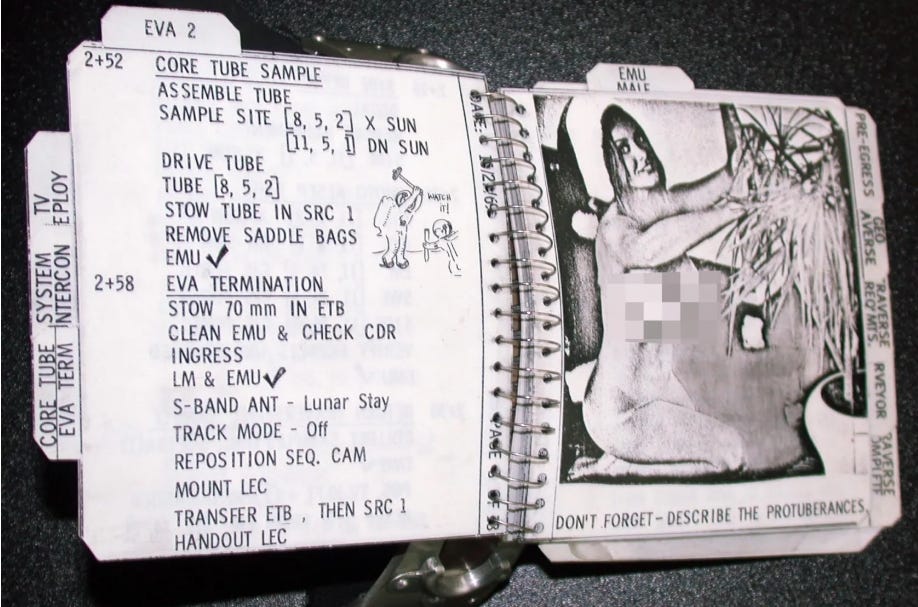 EVA 2
2+52 CORE TUBE SAMPLE
ASSEMBLE TUBE
SAMPLE SITE [8, 5, 2] X SUN
[11, 5, 1] DN SUN
DRIVE TUBE
TUBE [8, 5, 2]
STOW TUBE IN SRC 1
REMOVE SADDLE BAGS
EMU ✓
2+58 EVA TERMINATION
STOW 70 mm IN ETB
CLEAN EMU & CHECK CDR
INGRESS
LM & EMU ✓
S-BAND ANT - Lunar Stay
TRACK MODE - Off
REPOSITION SEQ. CAM
MOUNT LEC
TRANSFER ETB, THEN SRC 1
HANDOUT LEC
WATCH
IT!
CORE TUBE SYSTEM TV
EVA TERM INTERCON EPLOY
PAGE OF
EMU
MALF
DON'T FORGET - DESCRIBE THE PROTUBERANCES
PRE-EGRESS
GEO TRAVERSE
AVERSE REQMTS.
RVEYOR RAVERSE
OMPLETE